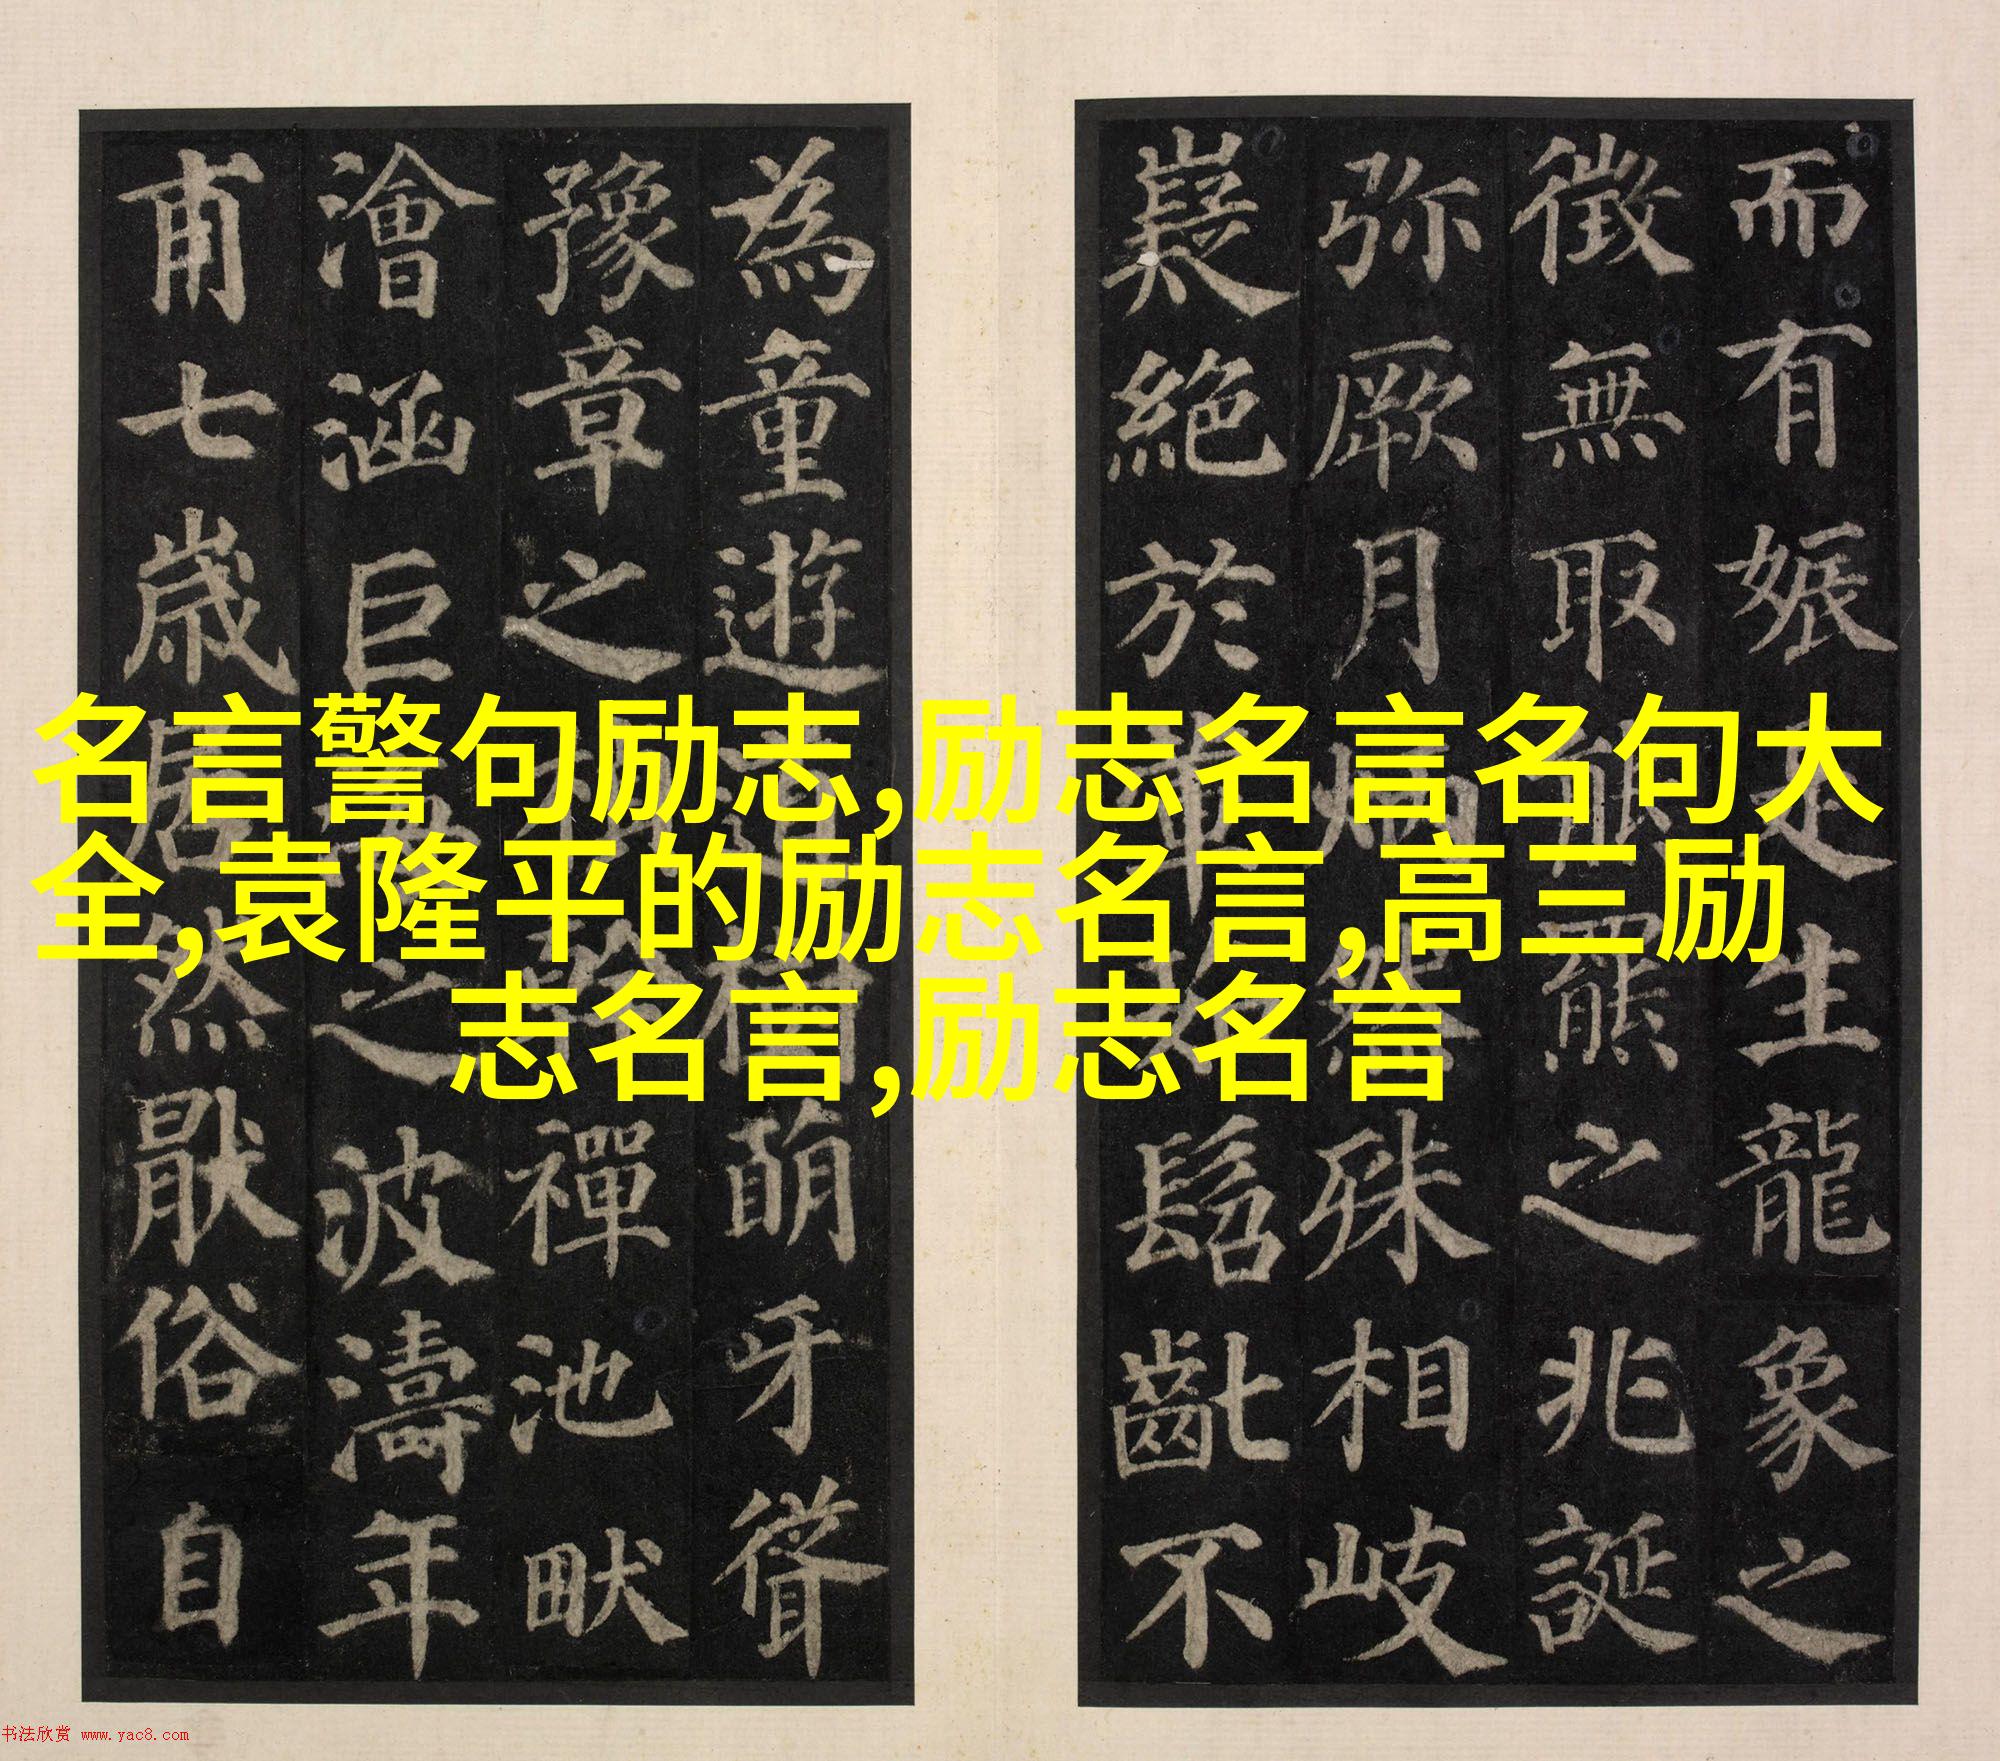 而有娠生龍象之
徵無取熊羆之兆誕
弥厥月炳殊相岐
嶷絶於髫齔不
為童遊道樹萌牙聳
豫章之楨幹禪池畎
澮涵巨壑之波濤年
甫七歲居然猒俗自
名言警句励志,励志名言名句大
全,袁隆平的励志名言,高三励
志名言,励志名言
书法欣赏 www.yac8.com